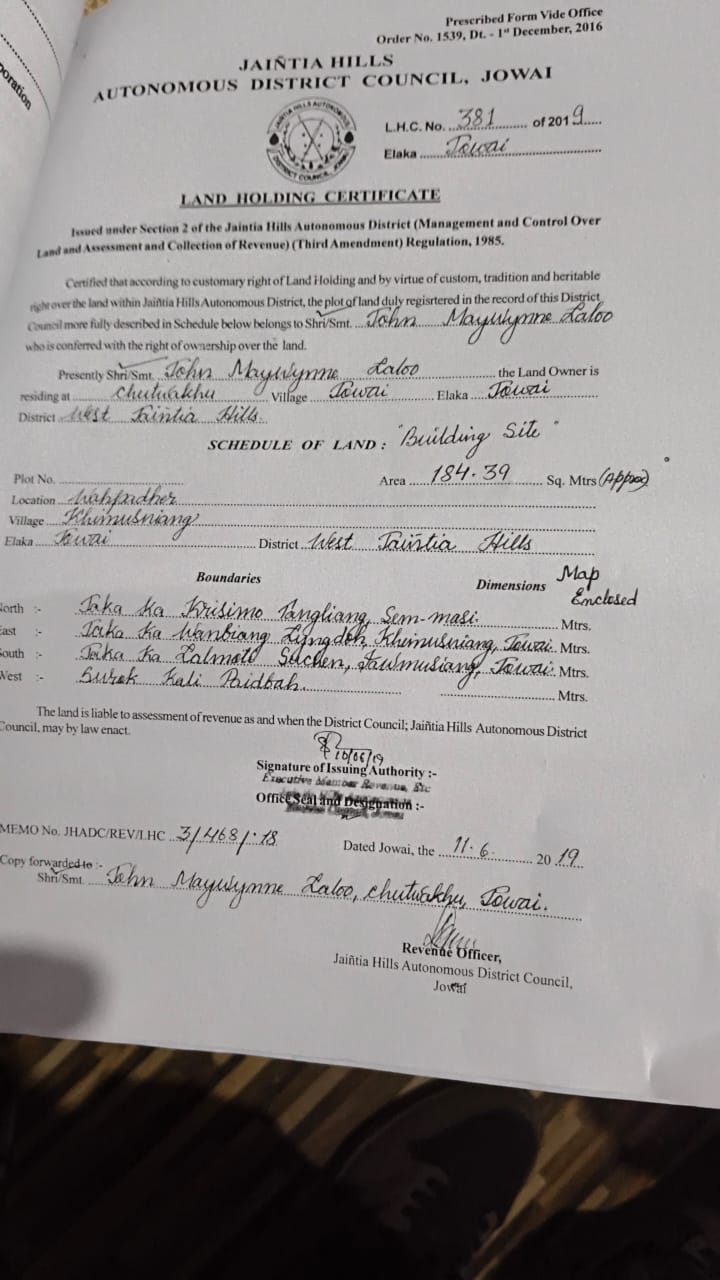 poration
Prescribed Form Vide Office
Order No. 1539, Dt. - 1st December, 2016
JAIÑTIA HILLS
AUTONOMOUS DISTRICT COUNCIL, JOWAI
JAIÑTIA HILLS AUTONOMOUS DISTRICT COUNCIL, JOWAI
L.H.C. No. 381 of 2019
Elaka Jowai
LAND HOLDING CERTIFICATE
Issued under Section 2 of the Jaintia Hills Autonomous District (Management and Control Over
Land and Assessment and Collection of Revenue) (Third Amendment) Regulation, 1985.
Certified that according to customary right of Land Holding and by virtue of custom, tradition and heritable
right over the land within Jaiñtia Hills Autonomous District, the plot of land duly regisrtered in the record of this District
Council more fully described in Schedule below belongs to Shri/Smt. John Maywynne Laloo
who is conferred with the right of ownership over the land.
Presently Shri/Smt. John Maywynne Laloo the Land Owner is
residing at Chutwakhu Village Jowai Elaka Jowai
District West Jaintia Hills.
SCHEDULE OF LAND : "Building Site"
Plot No. Area 184.39 Sq. Mtrs (Approx)
Location Wahpadher
Village Khimusniang
Elaka Jowai District West Jaiñtia Hills
Boundaries Dimensions Map Enclosed
North :- Jaka Ka Krisimo Tangliang, Sem-masi. Mtrs.
East :- Jaka Ka Wanbiang Lyngdoh, Khimusniang, Jowai. Mtrs.
South :- Jaka Ka Lalmote Suchen, Jawmusiang, Jowai. Mtrs.
West :- Surok Kali Paidbah. Mtrs.
The land is liable to assessment of revenue as and when the District Council; Jaiñtia Hills Autonomous District
Council, may by law enact.
10/06/19
Signature of Issuing Authority :-
Executive Member Revenue, Etc
Office Seal and Designation :-
MEMO No. JHADC/REV/LHC 3/468/18 Dated Jowai, the 11.6. 2019
Copy forwarded to :-
Shri/Smt. John Maywynne Laloo, Chutwakhu, Jowai.
Revenue Officer,
Jaiñtia Hills Autonomous District Council,
Jowai